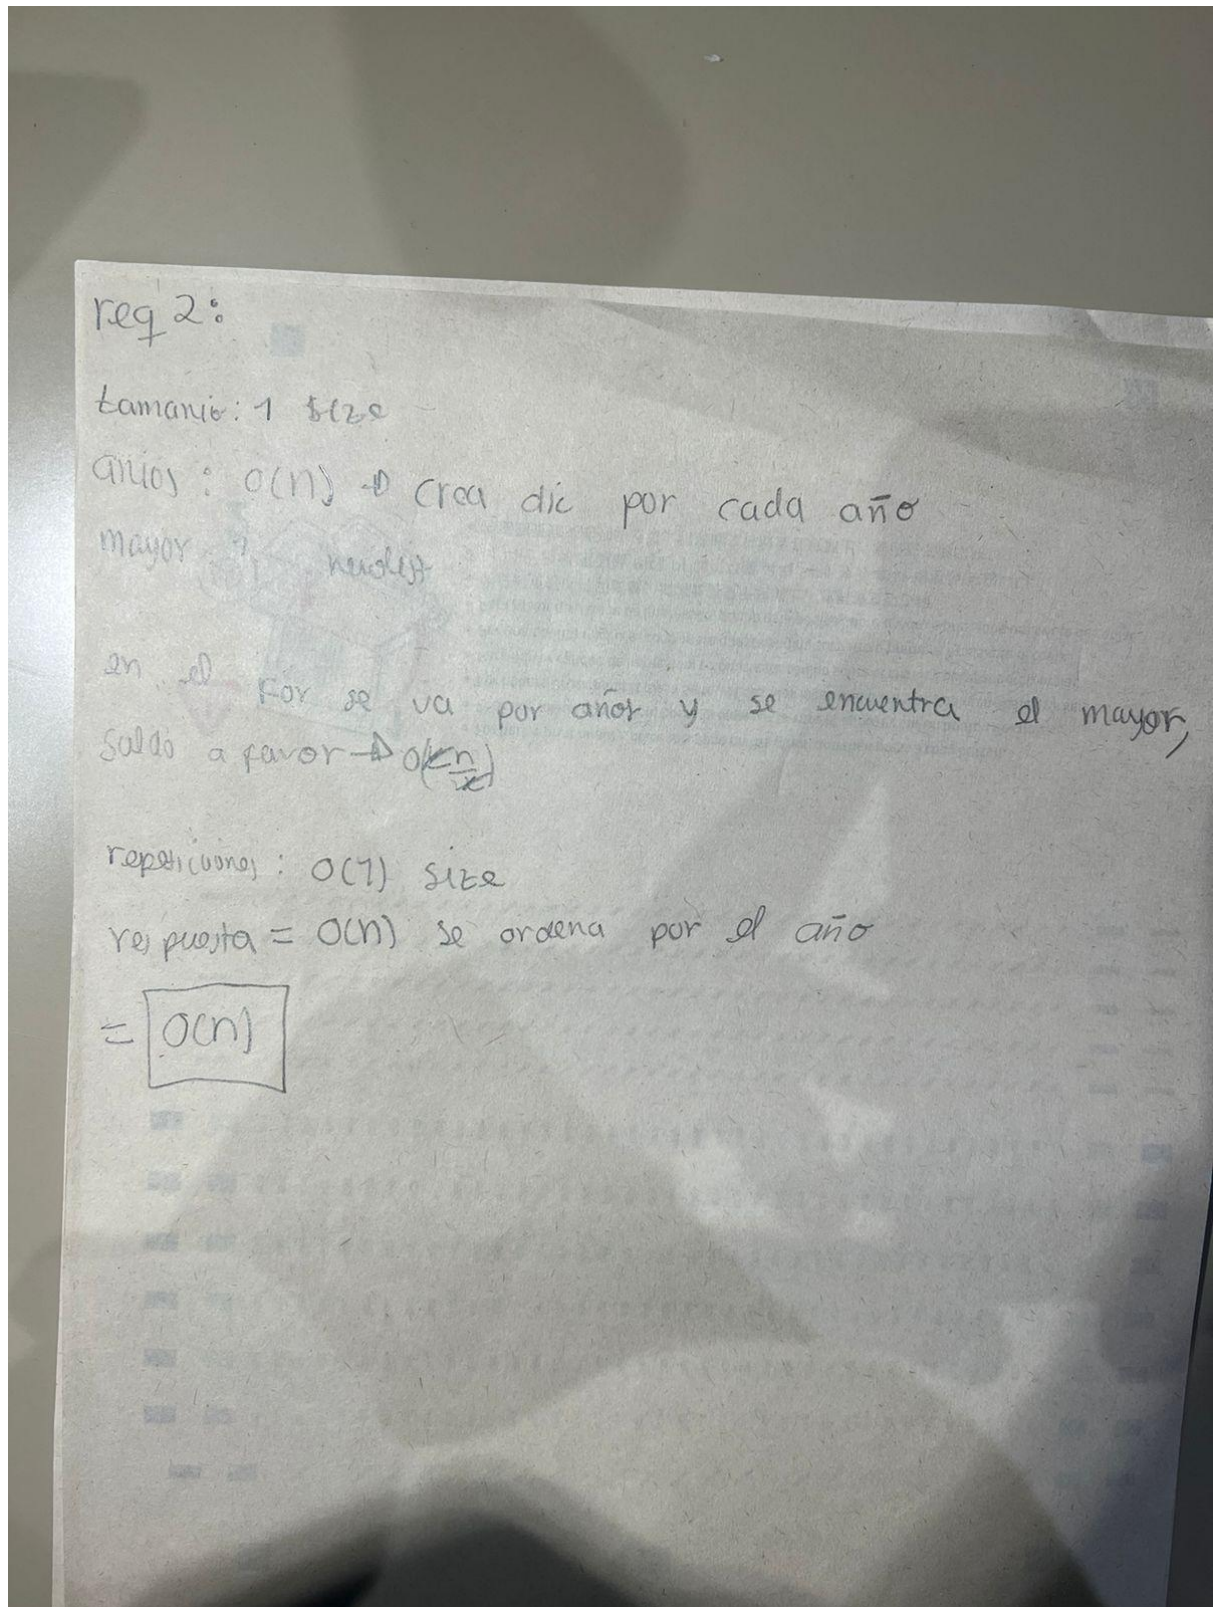 req 2:
tamanio: 1 size
anios: O(n) → crea dic por cada año
mayor 1 newlist
en el For se va por años y se encuentra el mayor,
saldo a favor → O(x n/x)
repeticiones: O(1) size
respuesta = O(n) se ordena por el año
= O(n)